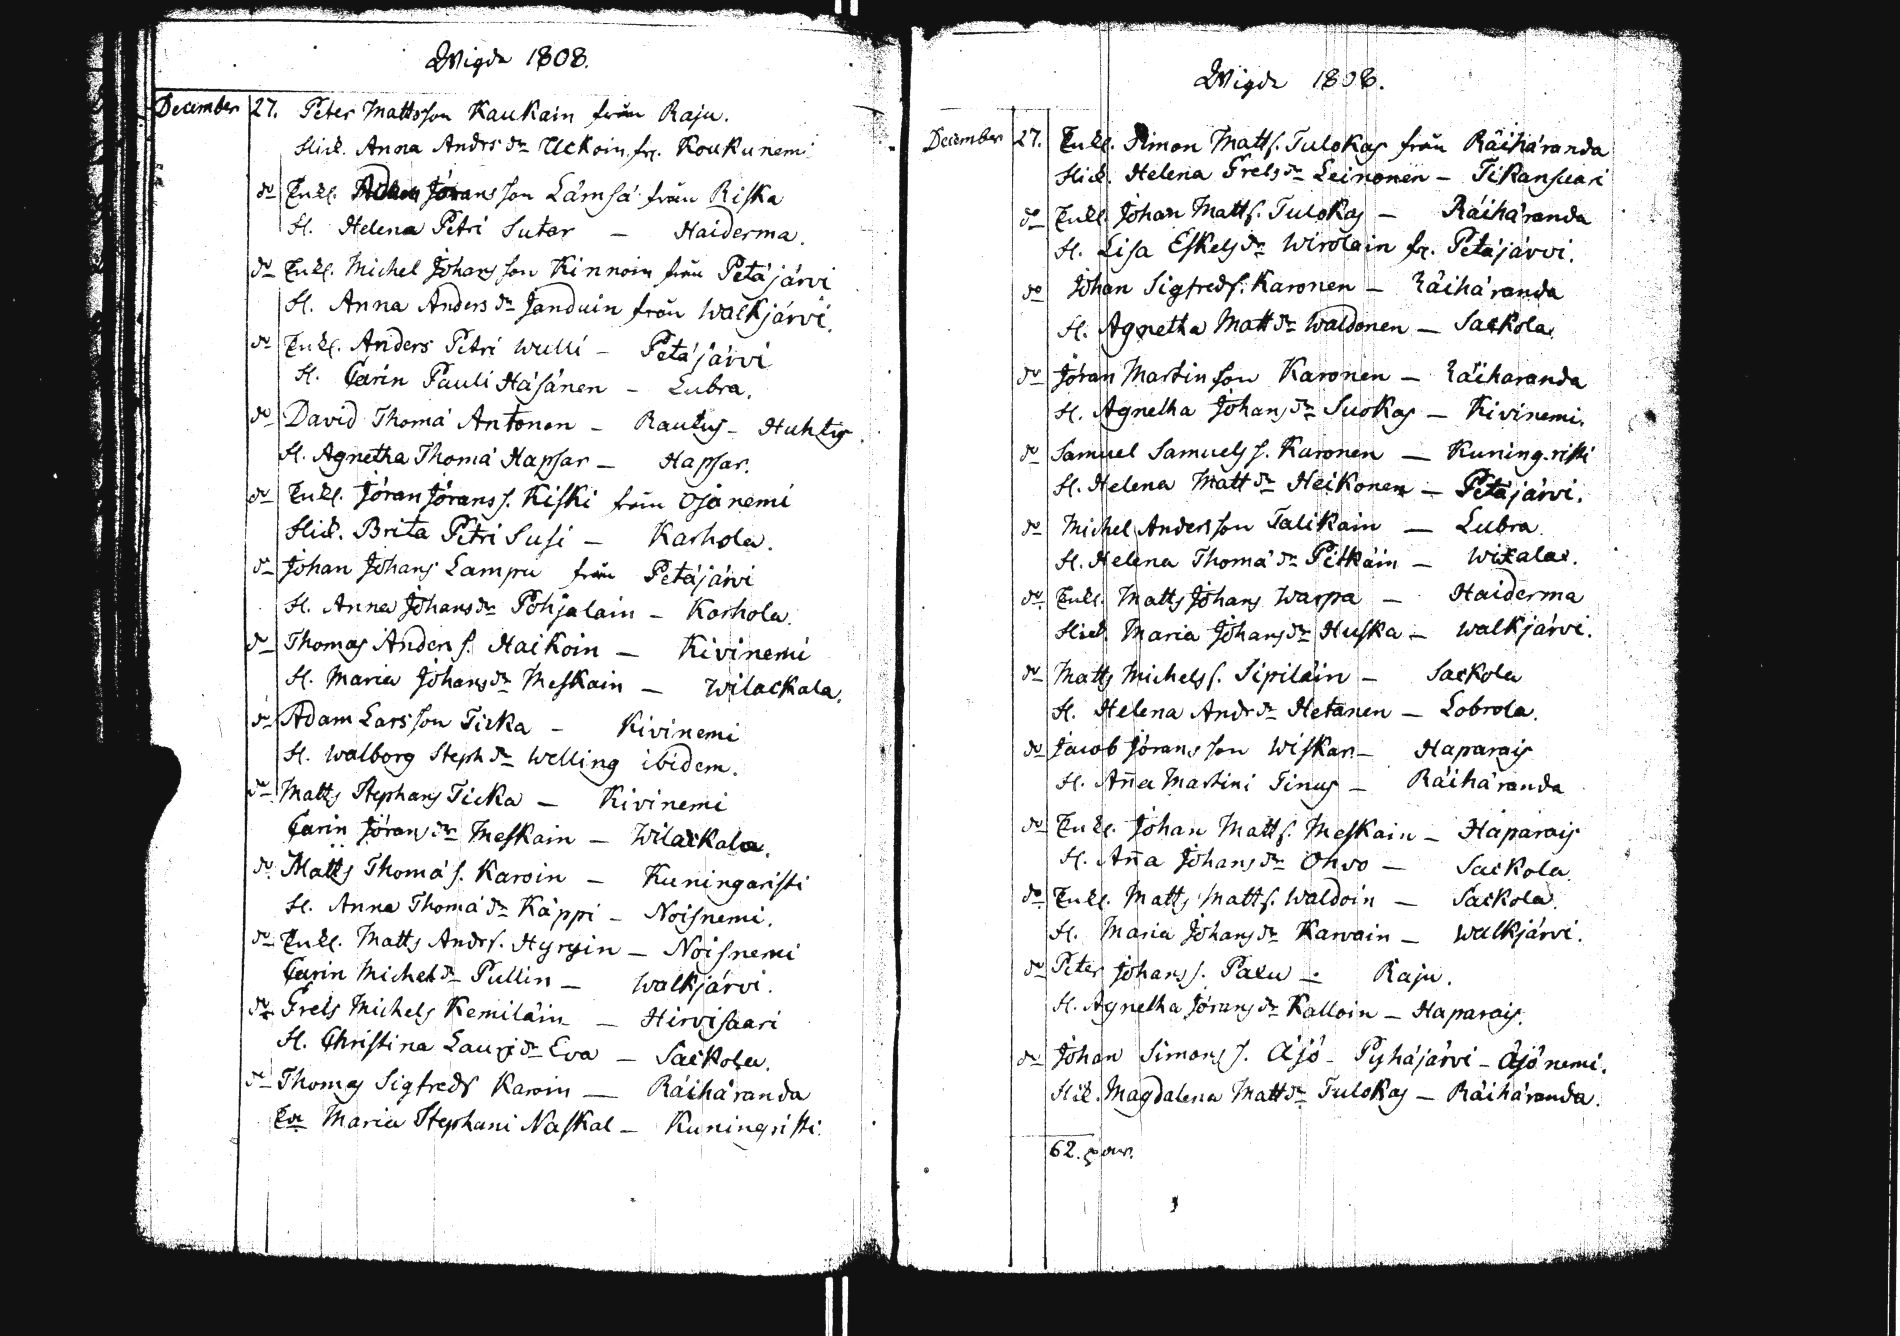 Wigde 1808.
December 27. Peter Mattsson Kaukain från Raju.
Hust. Anna Andrs dr Uckoin fr. Koukunemi
do Enkl. Adam Jöransson Lämsä från Riska
H. Helena Petri Sutar – Haiderma.
do Enkl. Michel Johansson Kinnoin från Petäjärvi
H. Anna Anders dr Janduin från Walkjärvi.
do Enkl. Anders Petri Wulli – Petäjärvi
H. Carin Pauli Häsänen – Lubra.
do David Thomä Antonen – Rautus – Huhtis.
H. Agnetha Thomä Hapsar – Hapsar.
do Enkl. Jöran Jörans s. Kiski från Ojanemi
Hust. Brita Petri Susi – Karhola.
do Johan Johans Lampu från Petäjärvi
H. Anna Johans dr Pohjalain – Korhola.
do Thomas Anders s. Haikoin – Kivinemi
H. Maria Johans dr Meskain – Wilackala.
do Adam Larsson Ticka – Kivinemi
H. Walborg Steph dr Welling ibidem.
do Matts Stephans Ticka – Kivinemi
Carin Jörans dr Meskain – Wilackala.
do Matts Thomä s. Karoin – Kuningaristi
H. Anna Thomä dr Käppi – Noisnemi.
do Enkl. Matts Andrs. Hyryin – Noisnemi
Carin Michels dr Pullin – Walkjärvi.
do Grels Michels Kemiläin – Hirvisaari
H. Christina Lauri dr Eva – Sackola.
do Thomas Sigfreds Karoin – Räihäranda
Maria Stephani Naskal – Kuningristi.
Wigde 1808.
December 27. Enkl. Simon Matts. Tulokas från Räihäranda
Hust. Helena Grels dr Leinonen – Tikansaari
do Enkl. Johan Matts. Tulokas – Räihäranda
H. Lisa Eskels dr Wirolain fr. Petäjärvi.
do Johan Sigfreds. Karonen – Räihäranda
H. Agnetha Matt dr Waldonen – Sackola.
do Jöran Martinson Karonen – Räiharanda
H. Agnetha Johans dr Suokas – Kivinemi.
do Samuel Samuels s. Karonen – Kuning.risti
H. Helena Matt dr Heikonen – Petäjärvi.
do Michel Andersson Talikain – Lubra.
H. Helena Thomä dr Pitkäin – Wixala.
do Enkl. Matts Johans Warpa – Haiderma
Hust. Maria Johans dr Huska – Walkjärvi.
do Matts Michels s. Sipiläin – Sackola
H. Helena Andr dr Hetanen – Lobrola.
do Jacob Jöransson Wiskar – Haparais
H. Aña Martini Tinus – Räihäranda
do Enkl. Johan Matts. Meskain – Haparais
H. Aña Johans dr Ohvo – Sackola.
do Enkl. Matts Matts. Waldoin – Sackola.
H. Maria Johans dr Karvain – Walkjärvi.
do Peter Johans s. Palu – Raju.
H. Agnetha Jörans dr Kalloin – Haparais.
do Johan Simons s. Äjö – Pyhäjärvi – Äjönemi.
Hust. Magdalena Matt dr Tulokas – Räihäranda.
62. par.